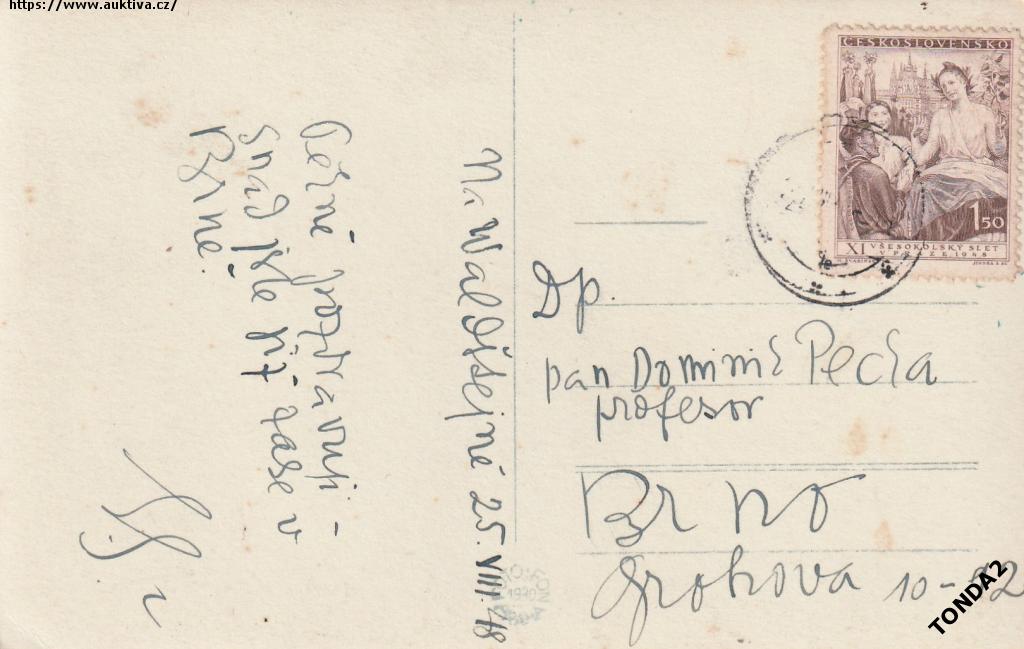 https://www.auktiva.cz/
ČESKOSLOVENSKO
1 50
XI VŠESOKOLSKÝ SLET
V PRAZE 1948
Na Waldštejně 25.VIII.48
pozdravuji -
snad jste již zase v
Brně.
Dp.
pan Dominik Pecka
profesor
Brno
Grohova 10-
TONDA2